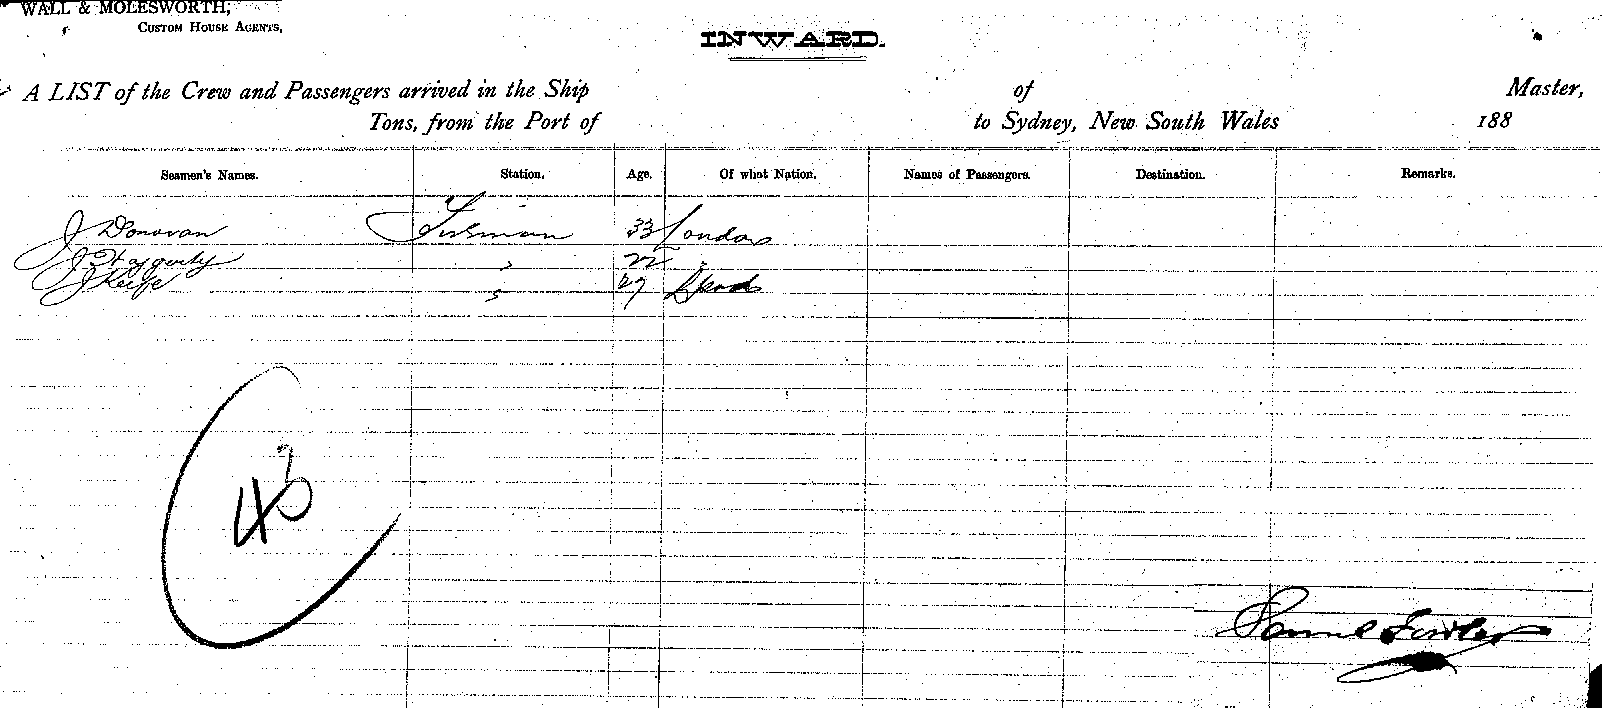 WALL & MOLESWORTH,
CUSTOM HOUSE AGENTS,
INWARD.
A LIST of the Crew and Passengers arrived in the Ship of Master,
Tons, from the Port of to Sydney, New South Wales 188
Seamen's Names. Station. Age. Of what Nation. Names of Passengers. Destination. Remarks.
J Donovan Fireman 33 London
J Haggerty " 22 "
J Keefe " 27
43
Samuel Fowler